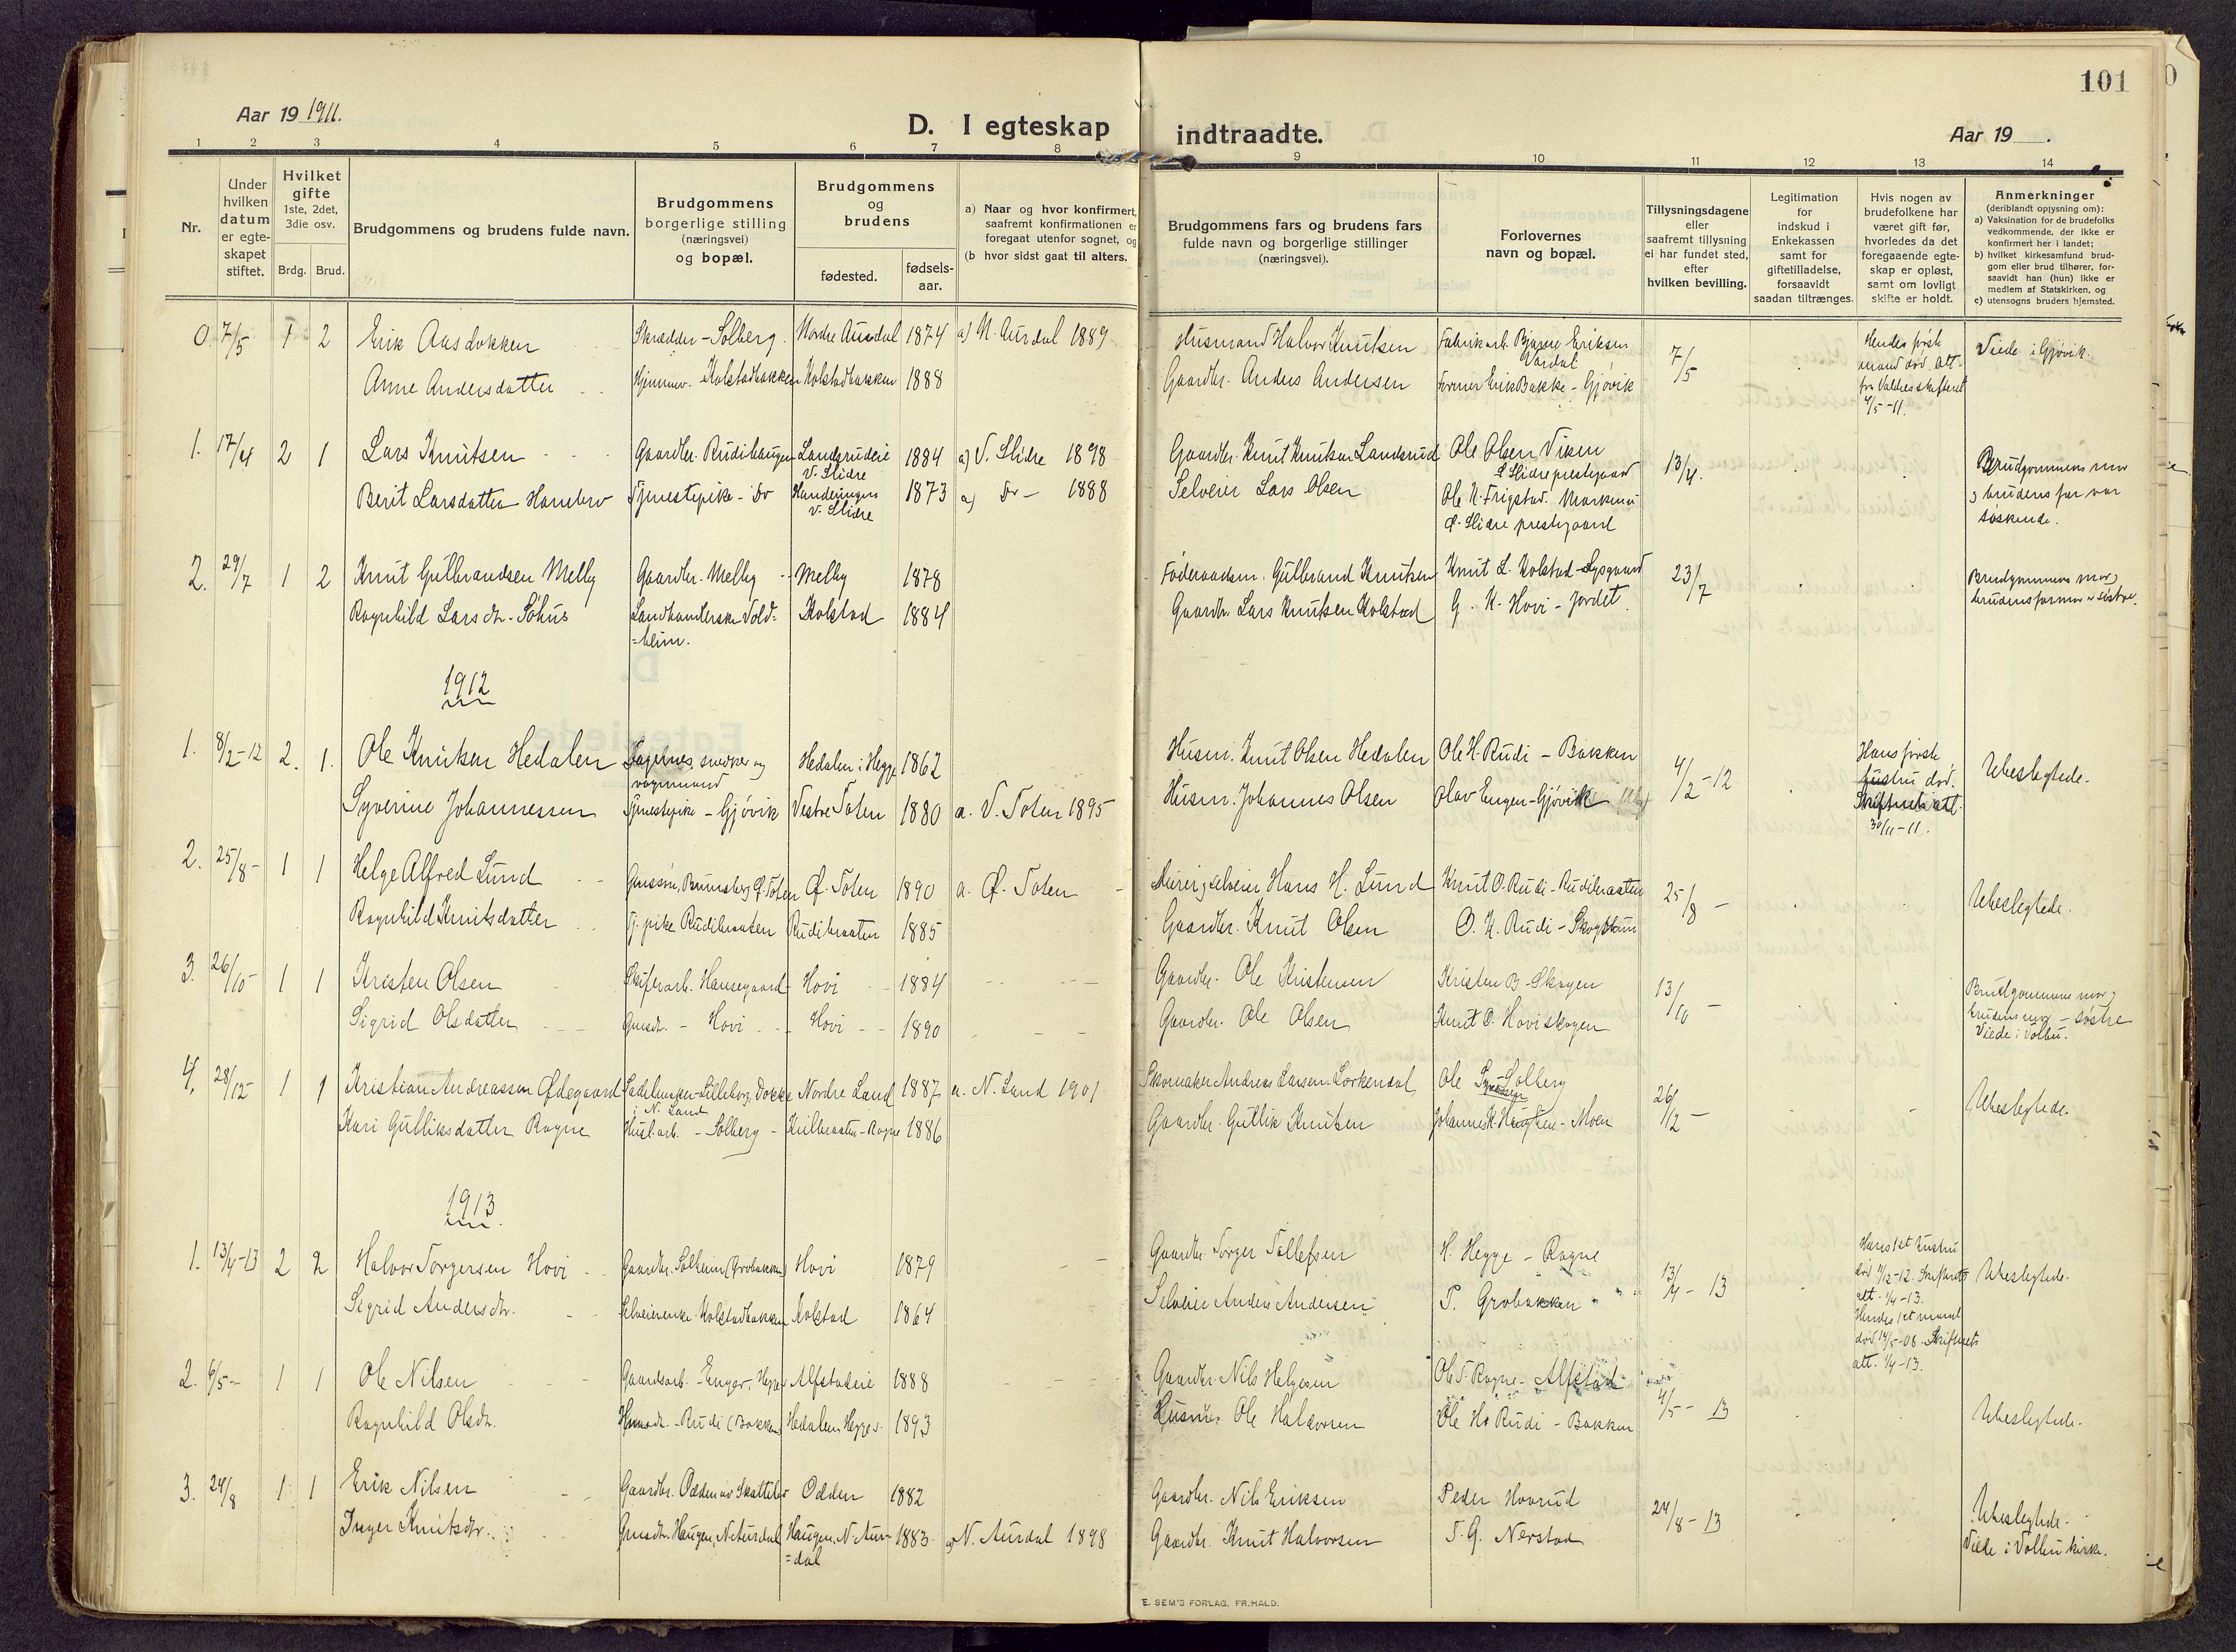 101
Aar 19 1911.
D. I egteskap indtraadte.
Aar 19 .
1 2 3 4 5 6 7 8 9 10 11 12 13 14
Nr.
Under hvilken datum er egteskapet stiftet.
Hvilket gifte
1ste, 2det, 3die osv.
Brdg. Brud.
Brudgommens og brudens fulde navn.
Brudgommens borgerlige stilling (næringsvei) og bopæl.
Brudgommens og brudens
fødested.
fødsels-aar.
a) Naar og hvor konfirmert, saafremt konfirmationen er foregaat utenfor sognet, og
(b hvor sidst gaat til alters.
Brudgommens fars og brudens fars fulde navn og borgerlige stillinger (næringsvei).
Forlovernes navn og bopæl.
Tillysningsdagene eller saafremt tillysning ei har fundet sted, efter hvilken bevilling.
Legitimation for indskud i Enkekassen samt for giftetilladelse, forsaavidt saadan tiltrænges.
Hvis nogen av brudefolkene har været gift før, hvorledes da det foregaaende egteskap er opløst, samt om lovligt skifte er holdt.
Anmerkninger (deriblandt opjysning om):
a) Vaksination for de brudefolks vedkommende, der ikke er konfirmert her i landet;
b) hvilket kirkesamfund brudgom eller brud tilhører, forsaavidt han (hun) ikke er medlem af Statskirken, og
c) utensogns bruders hjemsted.
0. 7/5 1 2 Erik Aasdokken Skrædder - Solberg. Nordre Aurdal 1874 a) N. Aurdal 1889 Husmand Halvor Knutsen Fabrikarb. Bjarne Eriksen Vardal 7/5 Hendes første mand død. Att. fra Valdres skifteret 4/5-11. Viede i Gjøvik.
Anne Andersdatter Kolstadbakken Kolstadbakken 1888 Gaardbr. Anders Andersen Former Erik Bakke - Gjøvik
1. 17/4 2 1 Lars Knutsen Gaardbr. Rudihaugen Landsrudeie V. Slidre 1884 a) V. Slidre 1898 Gaardbr. Knut Knutsen Landsrud Ole Olsen Viken Ø Slidre prestegaard 13/4. Brudgommens mor og brudens far var søskende.
Berit Larsdatter Hanebro Tjenestepike - Do V. Slidre 1873 a) Do - 1888 Selveier Lars Olsen Ole N. Frigstad. Ø. Slidre prestegaard
2. 29/7 1 2 Knut Gulbrandsen Melby Gaardbr. Melby Melby 1878 Føderaadsm. Gulbrand Knutsen Knut L. Kolstad - Lysgaard 23/7 Brudgommens mor og brudens farmor søstre.
Ragnhild Larsdtr. Sohus Landhandlerske Voldheim. Kolstad 1884 Gaardbr. Lars Knutsen Kolstad G. K. Hovi - Jordet.
1912
1. 8/2-12 2. 1. Ole Knutsen Hedalen Fagernes, snedker og vognmand Hedalen i Hegge 1862 Husm. Knut Olsen Hedalen Ole H. Rudi - Bakken 4/2-12 Hans første hustru død. Skifteret att. 30/11-11. Ubeslegtede.
Syverine Johannessen Tjenestepike - Gjøvik Vestre Toten 1880 a. V. Toten 1895 Husm. Johannes Olsen Olav Engen - Gjøvik
2. 25/8- 1 1 Helge Alfred Lund Ø. Toten Ø. Toten 1890 a. Ø. Toten Hans H. Lund Knut O. Rudi - Rudibraaten 25/8 - Ubeslegtede.
Ragnhild Knutsdatter Tj. pike Rudibraaten Rudibraaten 1885 Gaardbr. Knut Olsen O. K. Rudi - Skogstun
3. 26/10 1 1 Kristen Olsen Skiferarb. Hausegaard Hovi 1884 Gaardbr. Ole Kristensen Kristen B. Skogen 13/10 - Brudgommens mor og brudens mor - søstre Viede i Volbu.
Sigrid Olsdatter Gmdtr. - Hovi Hovi 1890 Gaardbr. Ole Olsen Knut O. Haviskogen
4. 28/12 1 1 Kristian Andreassen Ødegaard Sadelmaker - Lilleborg, Dokka i N. Land Nordre Land 1887 a. N. Land 1901 Skomaker Andreas Larsen Lorkendal Ole Solberg 26/12 - Ubeslegtede.
Kari Gulliksdatter Rogne Husl. arb. - Solberg - Kulbraaten - Rogne 1886 Gaardbr. Gullik Knutsen Johannes K. Haugen - Moen
1913
1. 13/4-13 2 2 Halvor Torgersen Hovi Gaardbr. Solheim (Grobakken) Hovi 1879 Gaardbr. Torger Tollefsen H. Hegge - Rogne 13/4 - 13 Hans 1st hustru død 4/12-12. Skifterets att. 1/4-13. Hendes 1st mand død 14/5-08. Skifterets att. 1/4-13. Ubeslegtede.
Sigrid Andersdtr. Selveierenke Kolstadbakken Kolstad 1864 Selveier Anders Andersen T. Grobakken
2. 6/5 - 1 1 Ole Nilsen Gaardsarb. - Enger, Hegge Alfstadeie 1888 Gaardbr. Nils Helgesen Ole T. Rogne - Alfstad 4/5 - 13 Ubeslegtede.
Ragnhild Olsdtr. Rudi (Bakken) Hedalen, Hegge s. 1893 Husm. Ole Halvorsen Ole H. Rudi - Bakken
3. 24/8 1 1 Erik Nilsen Gaardbr. Odden av Skattebo Odden 1882 Gaardbr. Nils Eriksen Peder Hovrud 24/8 - 13 Ubeslegtede. Viede i Volbu kirke.
Inger Knutsdtr. Gmdtr. Haugen, N. Aurdal Haugen, N. Aurdal 1883 a) N. Aurdal 1898 Gaardbr. Knut Halvorsen T. G. Nerstad
E. SEM'S FORLAG, FR.HALD.